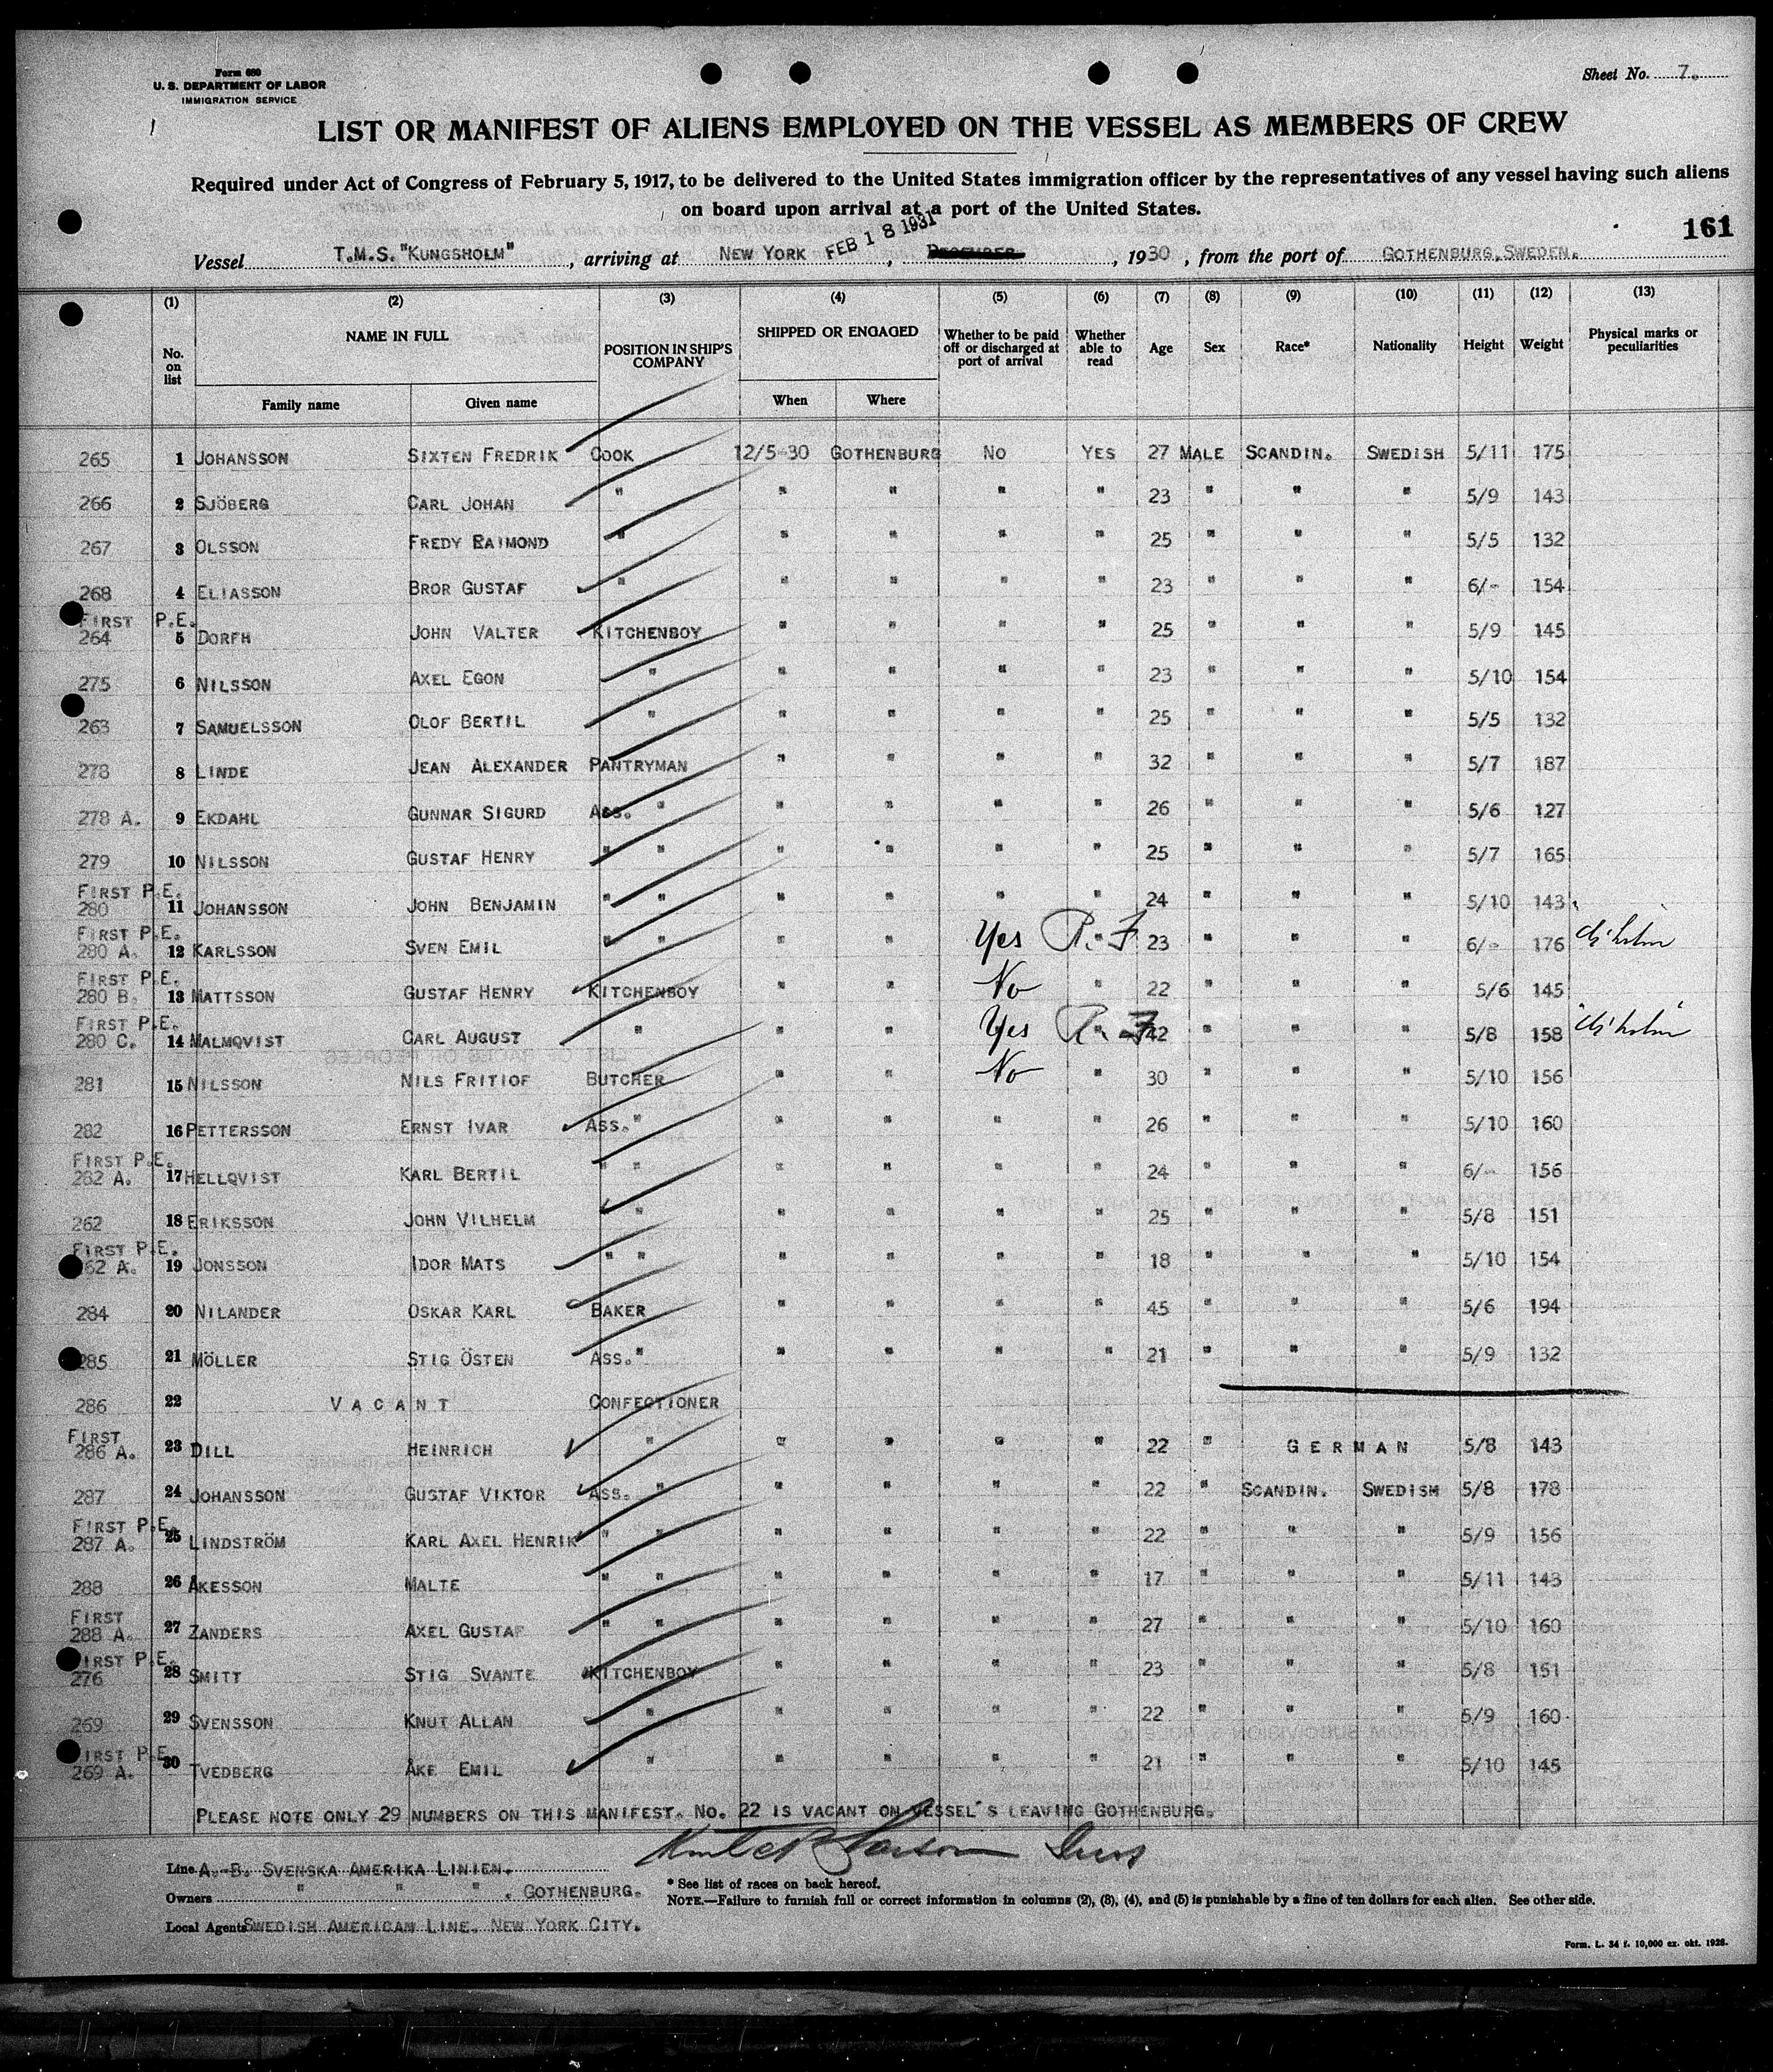 Form 680
U. S. DEPARTMENT OF LABOR
IMMIGRATION SERVICE
Sheet No. 7.
LIST OR MANIFEST OF ALIENS EMPLOYED ON THE VESSEL AS MEMBERS OF CREW
Required under Act of Congress of February 5, 1917, to be delivered to the United States immigration officer by the representatives of any vessel having such aliens
on board upon arrival at a port of the United States.
161
Vessel T.M.S. "KUNGSHOLM", arriving at NEW YORK FEB 18 1931, DECEMBER, 1930, from the port of GOTHENBURG, SWEDEN.
(1) (2) (3) (4) (5) (6) (7) (8) (9) (10) (11) (12) (13)
No. on list NAME IN FULL Family name Given name POSITION IN SHIP'S COMPANY SHIPPED OR ENGAGED When Where Whether to be paid off or discharged at port of arrival Whether able to read Age Sex Race* Nationality Height Weight Physical marks or peculiarities
265 1 JOHANSSON SIXTEN FREDRIK COOK 12/5-30 GOTHENBURG NO YES 27 MALE SCANDIN. SWEDISH 5/11 175
266 2 SJÖBERG CARL JOHAN " " " " " 23 " " " 5/9 143
267 3 OLSSON FREDY RAIMOND " " " " " 25 " " " 5/5 132
268 4 ELIASSON BROR GUSTAF " " " " " 23 " " " 6/- 154
FIRST P.E.
264 5 DORFH JOHN VALTER KITCHENBOY " " " " 25 " " " 5/9 145
275 6 NILSSON AXEL EGON " " " " " 23 " " " 5/10 154
263 7 SAMUELSSON OLOF BERTIL " " " " " 25 " " " 5/5 132
278 8 LINDE JEAN ALEXANDER PANTRYMAN " " " " 32 " " " 5/7 187
278 A. 9 EKDAHL GUNNAR SIGURD ASS. " " " " " 26 " " " 5/6 127
279 10 NILSSON GUSTAF HENRY " " " " " " 25 " " " 5/7 165
FIRST P.E.
280 11 JOHANSSON JOHN BENJAMIN " " " " " " 24 " " " 5/10 143
FIRST P.E.
280 A. 12 KARLSSON SVEN EMIL " " " " Yes R. F " 23 " " " 6/- 176
FIRST P.E.
280 B. 13 MATTSSON GUSTAF HENRY KITCHENBOY " " No " 22 " " " 5/6 145
FIRST P.E.
280 C. 14 MALMQVIST CARL AUGUST " " " Yes R. F " 42 " " " 5/8 158
281 15 NILSSON NILS FRITIOF BUTCHER " " No " 30 " " " 5/10 156
282 16 PETTERSSON ERNST IVAR ASS. " " " " " 26 " " " 5/10 160
FIRST P.E.
282 A. 17 HELLQVIST KARL BERTIL " " " " " " 24 " " " 6/- 156
262 18 ERIKSSON JOHN VILHELM " " " " " " 25 " " " 5/8 151
FIRST P.E.
262 A. 19 JONSSON IDOR MATS " " " " " " 18 " " " 5/10 154
284 20 NILANDER OSKAR KARL BAKER " " " " 45 " " " 5/6 194
285 21 MÖLLER STIG ÖSTEN ASS. " " " " " 21 " " " 5/9 132
286 22 VACANT CONFECTIONER
FIRST
286 A. 23 DILL HEINRICH " " " " " 22 " GERMAN 5/8 143
287 24 JOHANSSON GUSTAF VIKTOR ASS. " " " " " 22 " SCANDIN. SWEDISH 5/8 178
FIRST P.E.
287 A. 25 LINDSTRÖM KARL AXEL HENRIK " " " " " " 22 " " " 5/9 156
288 26 ÅKESSON MALTE " " " " " " 17 " " " 5/11 143
FIRST
288 A. 27 ZANDERS AXEL GUSTAF " " " " " " 27 " " " 5/10 160
FIRST P.E.
276 28 SMITT STIG SVANTE KITCHENBOY " " " " 23 " " " 5/8 151
269 29 SVENSSON KNUT ALLAN " " " " " 22 " " " 5/9 160
FIRST P.E.
269 A. 30 TVEDBERG ÅKE EMIL " " " " " 21 " " " 5/10 145
PLEASE NOTE ONLY 29 NUMBERS ON THIS MANIFEST. NO. 22 IS VACANT ON VESSEL'S LEAVING GOTHENBURG.
Line A.-B. SVENSKA AMERIKA LINIEN.
Owners " " " , GOTHENBURG.
Local Agents SWEDISH AMERICAN LINE, NEW YORK CITY.
* See list of races on back hereof.
NOTE.—Failure to furnish full or correct information in columns (2), (3), (4), and (5) is punishable by a fine of ten dollars for each alien. See other side.
Form. L. 34 f. 10,000 ex. okt. 1928.